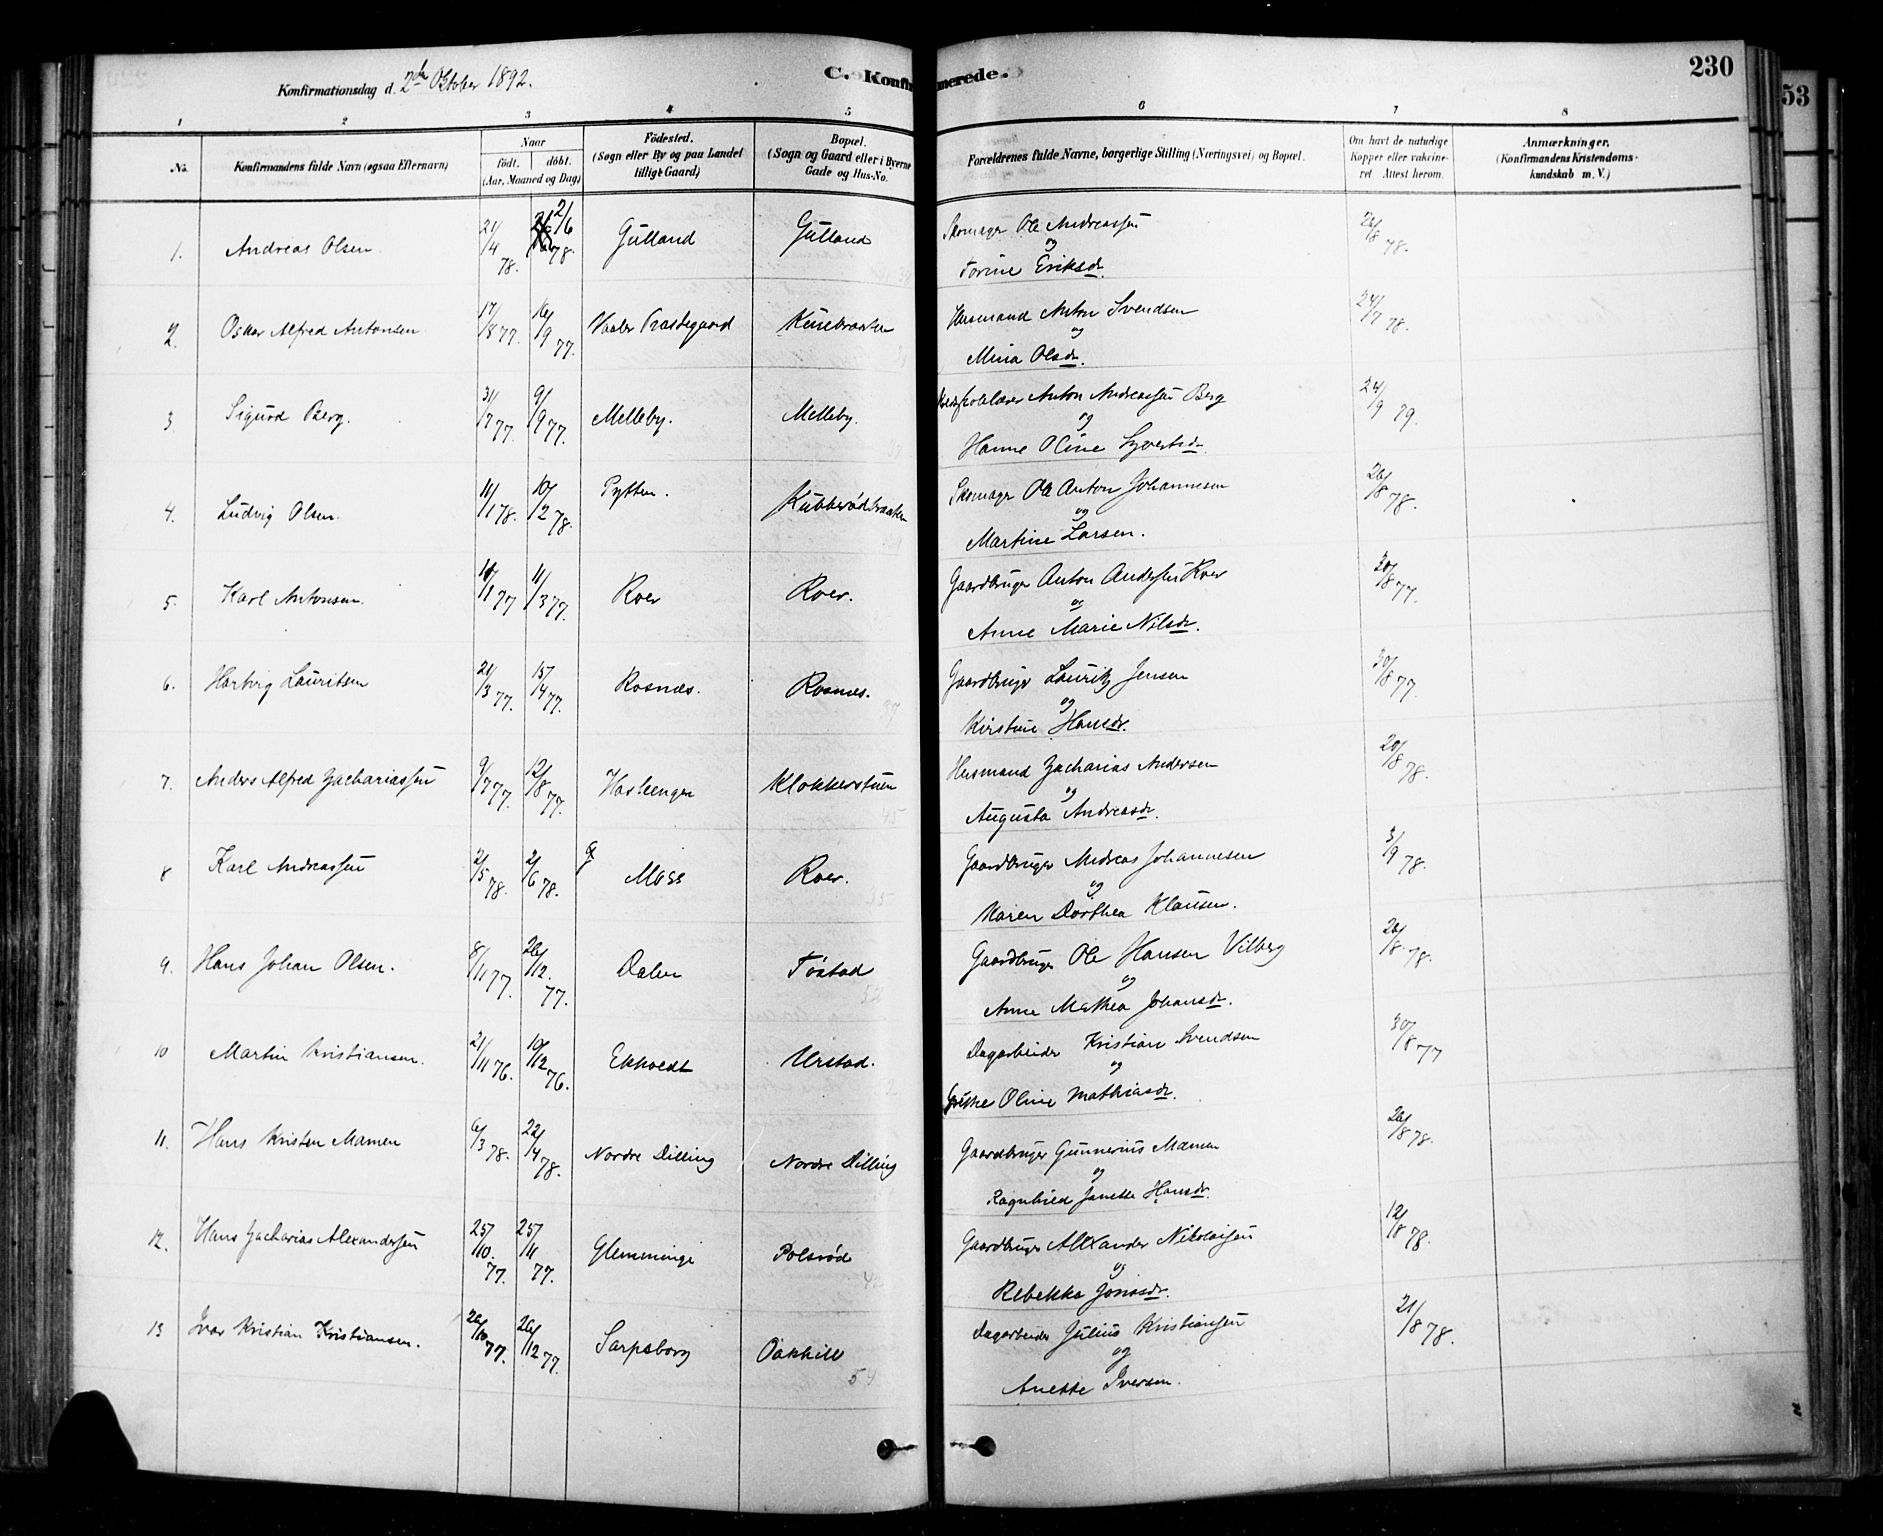 Konfirmationsdag d. 2den Oktober 1892.
C. Konfirmerede.
230
53
1 2 3 4 5 6 7 8
No. Konfirmandens fulde Navn (ogsaa Efternavn) Naar födt. döbt. (Aar, Maaned og Dag) Födested. (Sogn eller By og paa Landet tillige Gaard) Bopæl. (Sogn og Gaard eller i Byerne Gade og Hus-No. Forældrenes fulde Navne, borgerlige Stilling (Næringsvei) og Bopæl. Om havt de naturlige Kopper eller vakcineret Attest herom. Anmærkninger, (Konfirmandens Kristendomskundskab m. V.)
1. Andreas Olsen. 21/4 78. 2/6 78. Gulland Gulland Skomager Ole Andreassen og Torine Eriksdr. 26/8 78.
2. Oskar Alfred Antonsen 17/8 77. 16/9 77. Vaaler Præstegaard Husmand Anton Svendsen og Mina Olsdr. 24/7 78.
3. Sigurd Berg. 31/7 77. 9/9 77. Melleby. Melleby. Anton Andreassen Berg og Hanne Oline Syvertsdr. 24/9 79.
4. Ludvig Olsen. 11/1 78. 10/2 78. Pytten. Kubberødbraaten Skomager Ole Anton Johannesen og Martine Larsen. 26/8 78.
5. Karl Antonsen. 10/1 77 11/3 77. Roer Roer. Gaardbruger Anton Andersen Roer og Anne Marie Nilsdr. 30/8 77.
6. Hartvig Lauritsen 21/3 77. 15/4 77. Rosnæs. Rosnæs. Gaardbruger Lauritz Jensen og Kirstine Hansdr. 30/8 77.
7. Anders Alfred Zachariassen 9/7 77. 12/8 77. Hasleengen Klokkerstuen Husmand Zacharias Andersen og Augusta Andreasdr. 20/8 78.
8 Karl Andreassen 2/5 78. 2/6 78. Moss Roer. Gaardbruger Andreas Johannesen og Karen Dorthea Klausen. 3/9 78.
9. Hans Johan Olsen. 8/11 77. 26/12. 77. Dalen Tøstad Gaardbruger Ole Hansen Vilberg og Anne Mathea Johansdr. 26/8 78.
10 Martin Kristiansen. 21/11 76. 10/12 76. Ekholdt Urstad. Dagarbeider Kristian Svendsen og Oline Mathiasdr. 30/8 77
11. Hans Kristen Mamen 6/3 78. 22/4 78. Nordre Dilling Nordre Dilling Gaardbruger Gunnerius Mamen og Ragnhild Janette Hansdr. 26/8 78.
12. Hans Zacharias Alexandersen 25/10. 77. 25/11 77. Glemminge Polsrød Gaardbruger Alexander Nikolaisen og Rebekka Jonasdr. 12/8 78.
13 Ivar Kristian Kristiansen. 26/10 77. 26/12 77. Sarpsborg Oakhill 54 Dagarbeider Julius Kristiansen og Anette Iversen. 21/8 78.